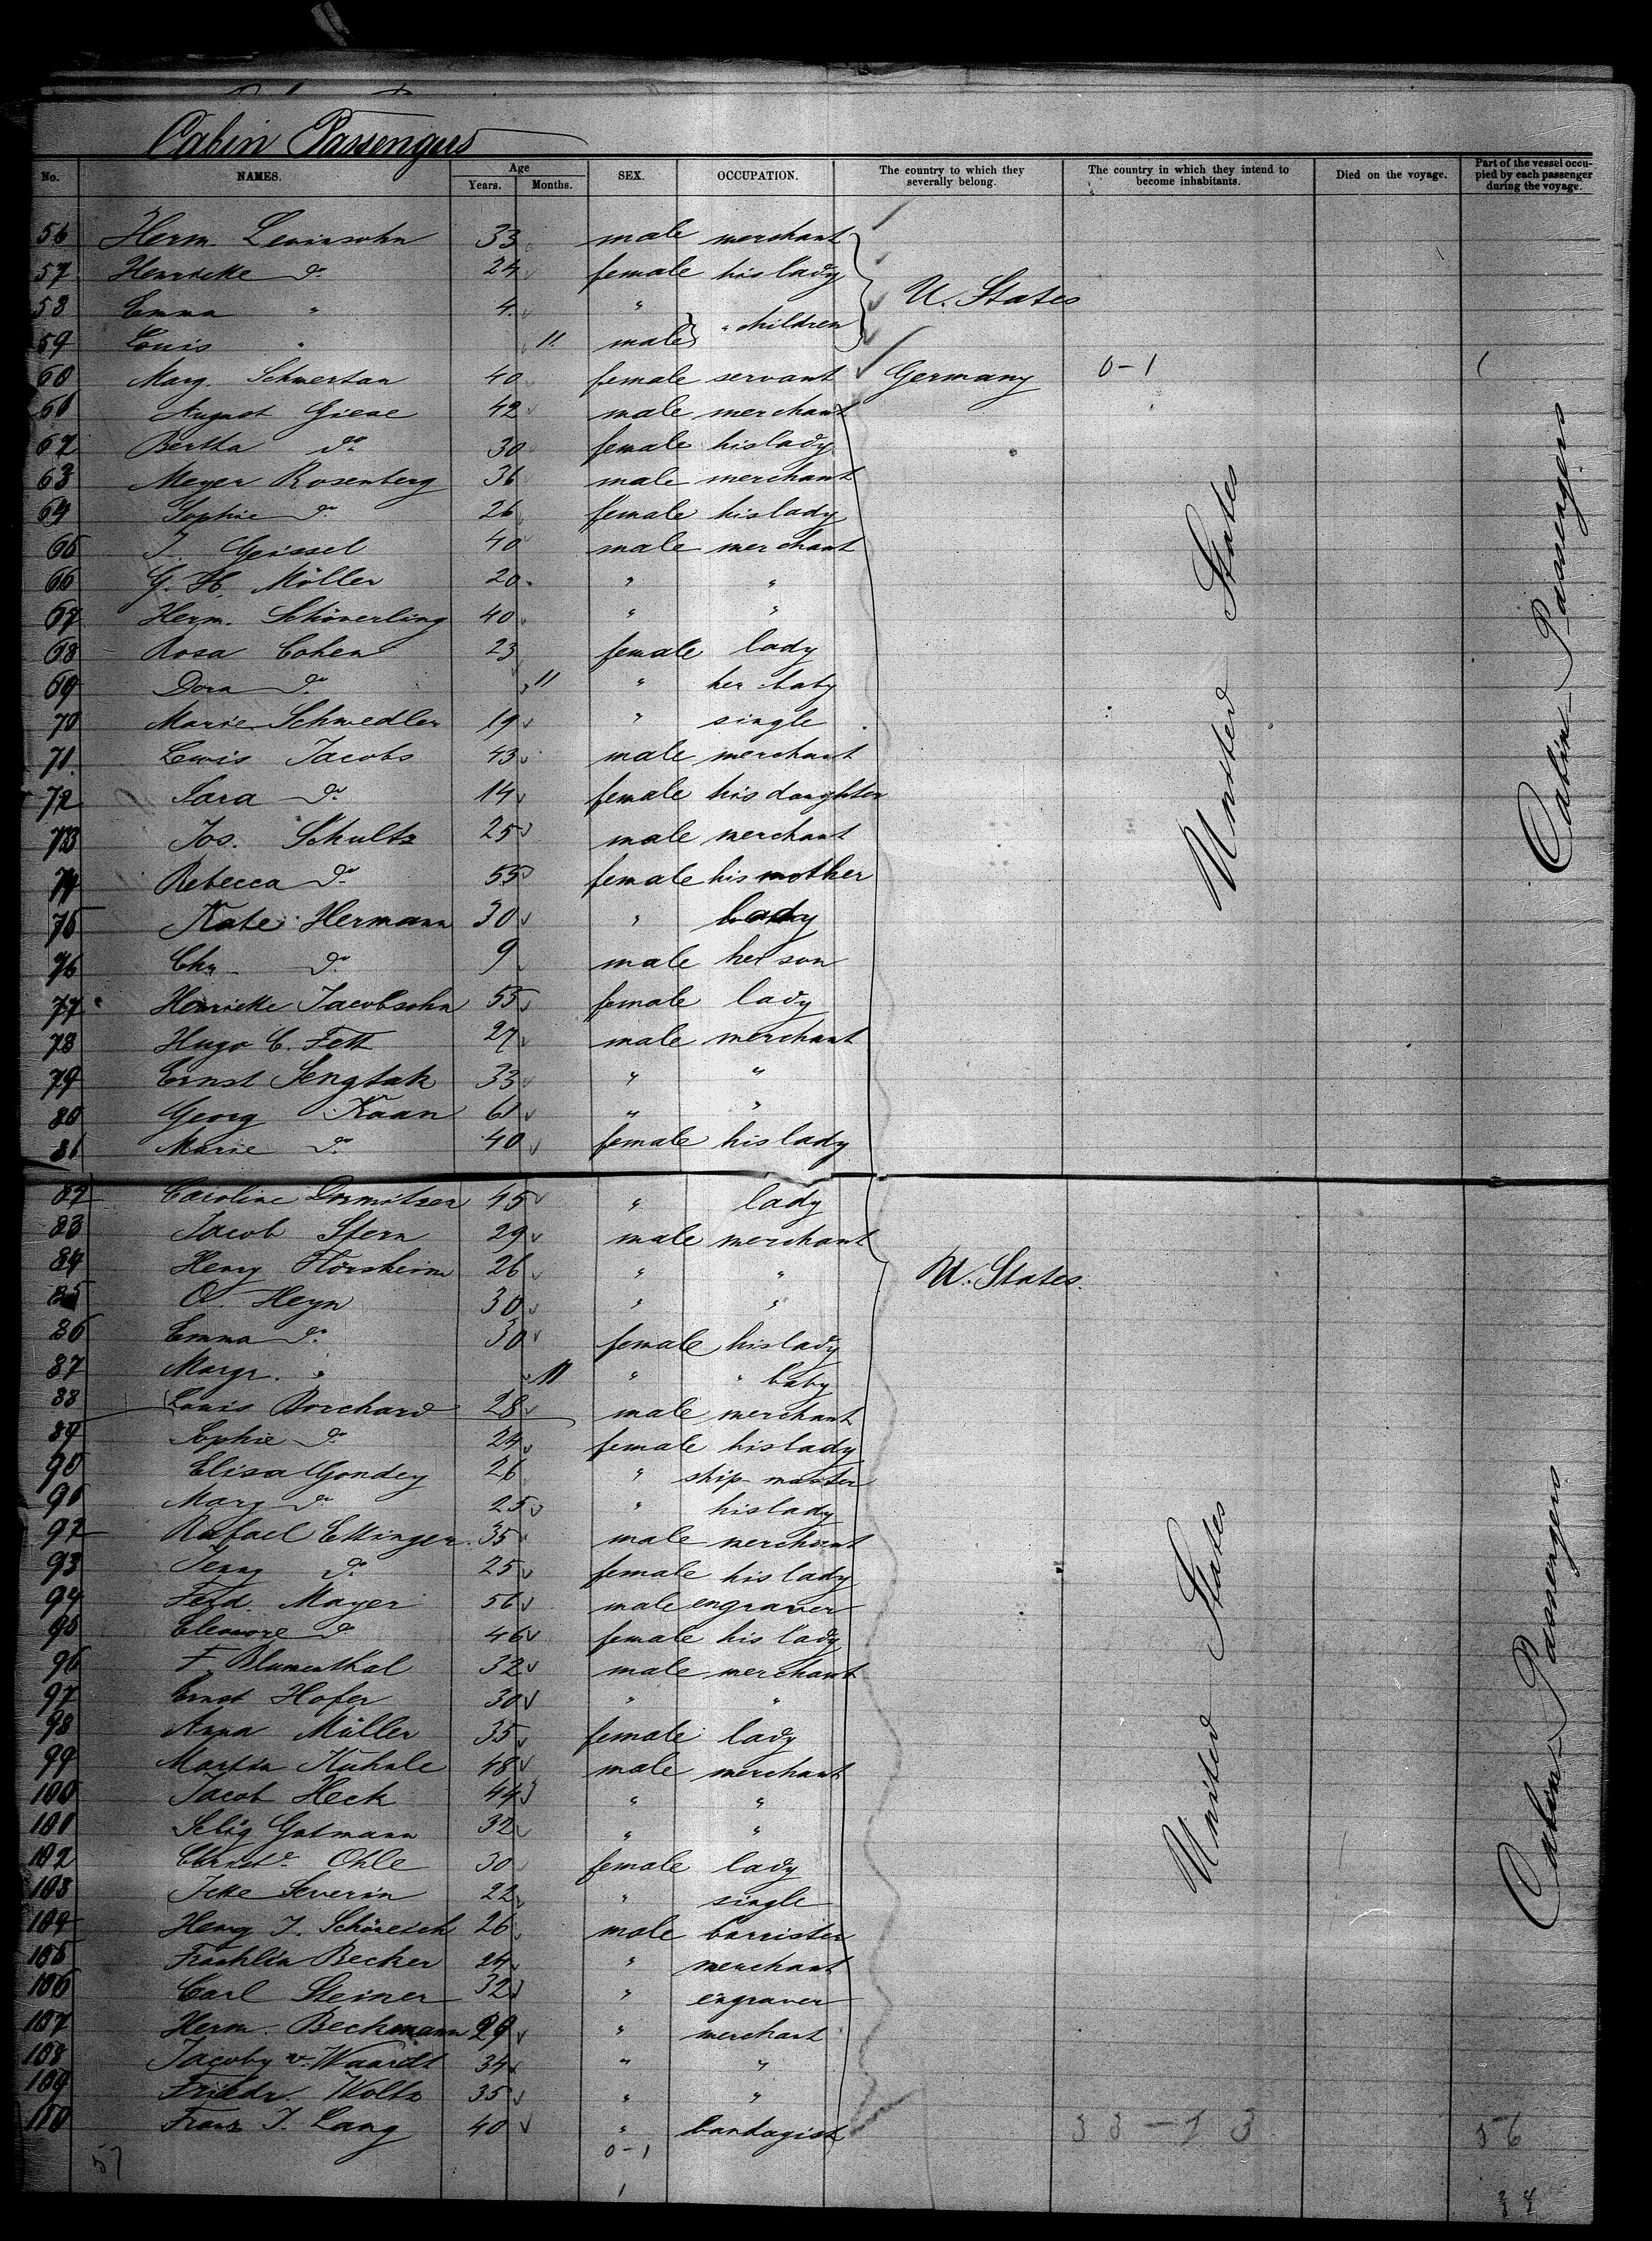 Cabin Passengers
No. NAMES. Age Years. Months. SEX. OCCUPATION. The country to which they severally belong. The country in which they intend to become inhabitants. Died on the voyage. Part of the vessel occupied by each passenger during the voyage.
56 Herm. Levinsohn 33 male merchant
57 Henricke do 24 female his lady
U. States
58 Emma " 4 "
59 Louis " 11 male " children
60 Marg. Schwertan 40 female servant Germany 0-1
61 August Giese 42 male merchant
62 Bertha do 30 female his lady
63 Meyer Rosenberg 36 male merchant
64 Sophie do 26 female his lady
65 J. Geissel 40 male merchant
66 G. H. Möller 20 " "
67 Herm. Schöverling 40 " "
68 Rosa Cohen 23 female lady
69 Dora do 11 " her baby
70 Marie Schwedler 19 " single
71 Lewis Jacobs 43 male merchant
72 Sara do 14 female his daughter
73 Jos. Schultz 25 male merchant
74 Rebecca do 55 female his mother
75 Kate Hermann 30 " lady
76 Chr do 9 male her son
77 Henricke Jacobsohn 55 female lady
78 Hugo C. Fett 27 male merchant
79 Ernst Sengstak 33 " "
80 Georg Kaan 61 " "
81 Marie do 40 female his lady
United States
Cabin Passengers
82 Caroline Dormitzer 45 " lady
83 Jacob Stern 29 male merchant
84 Henry Florsheim 26 " "
U. States.
85 O. Heyn 30 " "
86 Emma do 30 female his lady
87 Margr. " 11 " " baby
88 Louis Borchard 28 male merchant
89 Sophie do 24 female his lady
90 Elisa Gondey 26 " ship master
91 Marg do 25 " his lady
92 Rafael Ettinger 35 male merchant
93 Jenny do 25 female his lady
94 Ferd. Mayer 56 male engraver
95 Eleonore do 46 female his lady
96 F. Blumenthal 32 male merchant
97 Ernst Hofer 30 " "
98 Anna Müller 35 female lady
99 Martin Kuhnle 48 male merchant
100 Jacob Heck 44 " "
101 Selig Gutmann 32 " "
102 Ohle 30 female lady
103 Severin 22 " single
104 Henry J. 26 male barrister
105 Franklin Becker 24 " merchant
106 Carl Steiner 32 " engraver
107 Herm. Beckmann 29 " merchant
108 Jacoby v. Waardt 34 " "
109 Friedr. Woltz 35 " "
110 Franz J. Lang 40 " bandagist
United States
Cabin Passengers
0-1
33-13
56
57
1